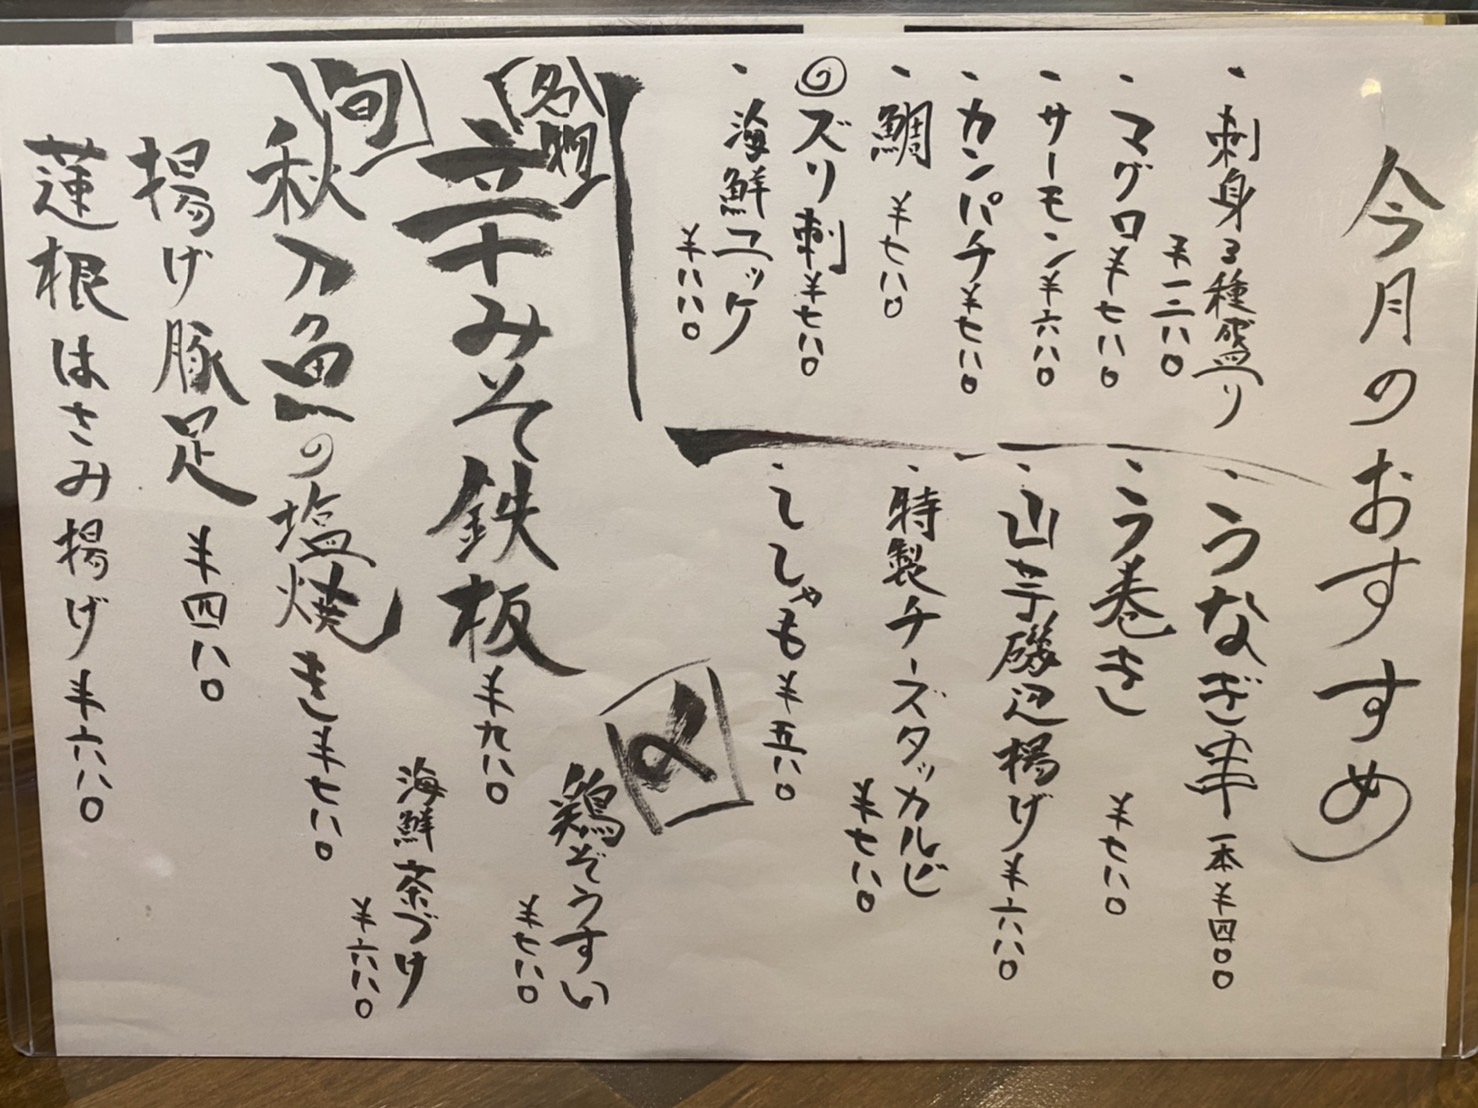 今月のおすすめ
・刺身3種盛り
¥一二八〇
・マグロ¥七八〇
・サーモン¥六八〇
・カンパチ¥七八〇
・鯛 ¥七八〇
◎ズリ刺¥七八〇
・海鮮ユッケ
¥八八〇
・うなぎ串 一本¥四〇〇
・う巻き ¥七八〇
・山芋磯辺揚げ¥六八〇
・特製チーズタッカルビ
¥七八〇
・ししゃも¥五八〇
名物
辛みそ鉄板¥九八〇
旬
秋刀魚の塩焼き¥七八〇
揚げ豚足 ¥四八〇
蓮根はさみ揚げ¥六八〇
〆
鶏ぞうすい
¥七八〇
海鮮茶づけ
¥六八〇